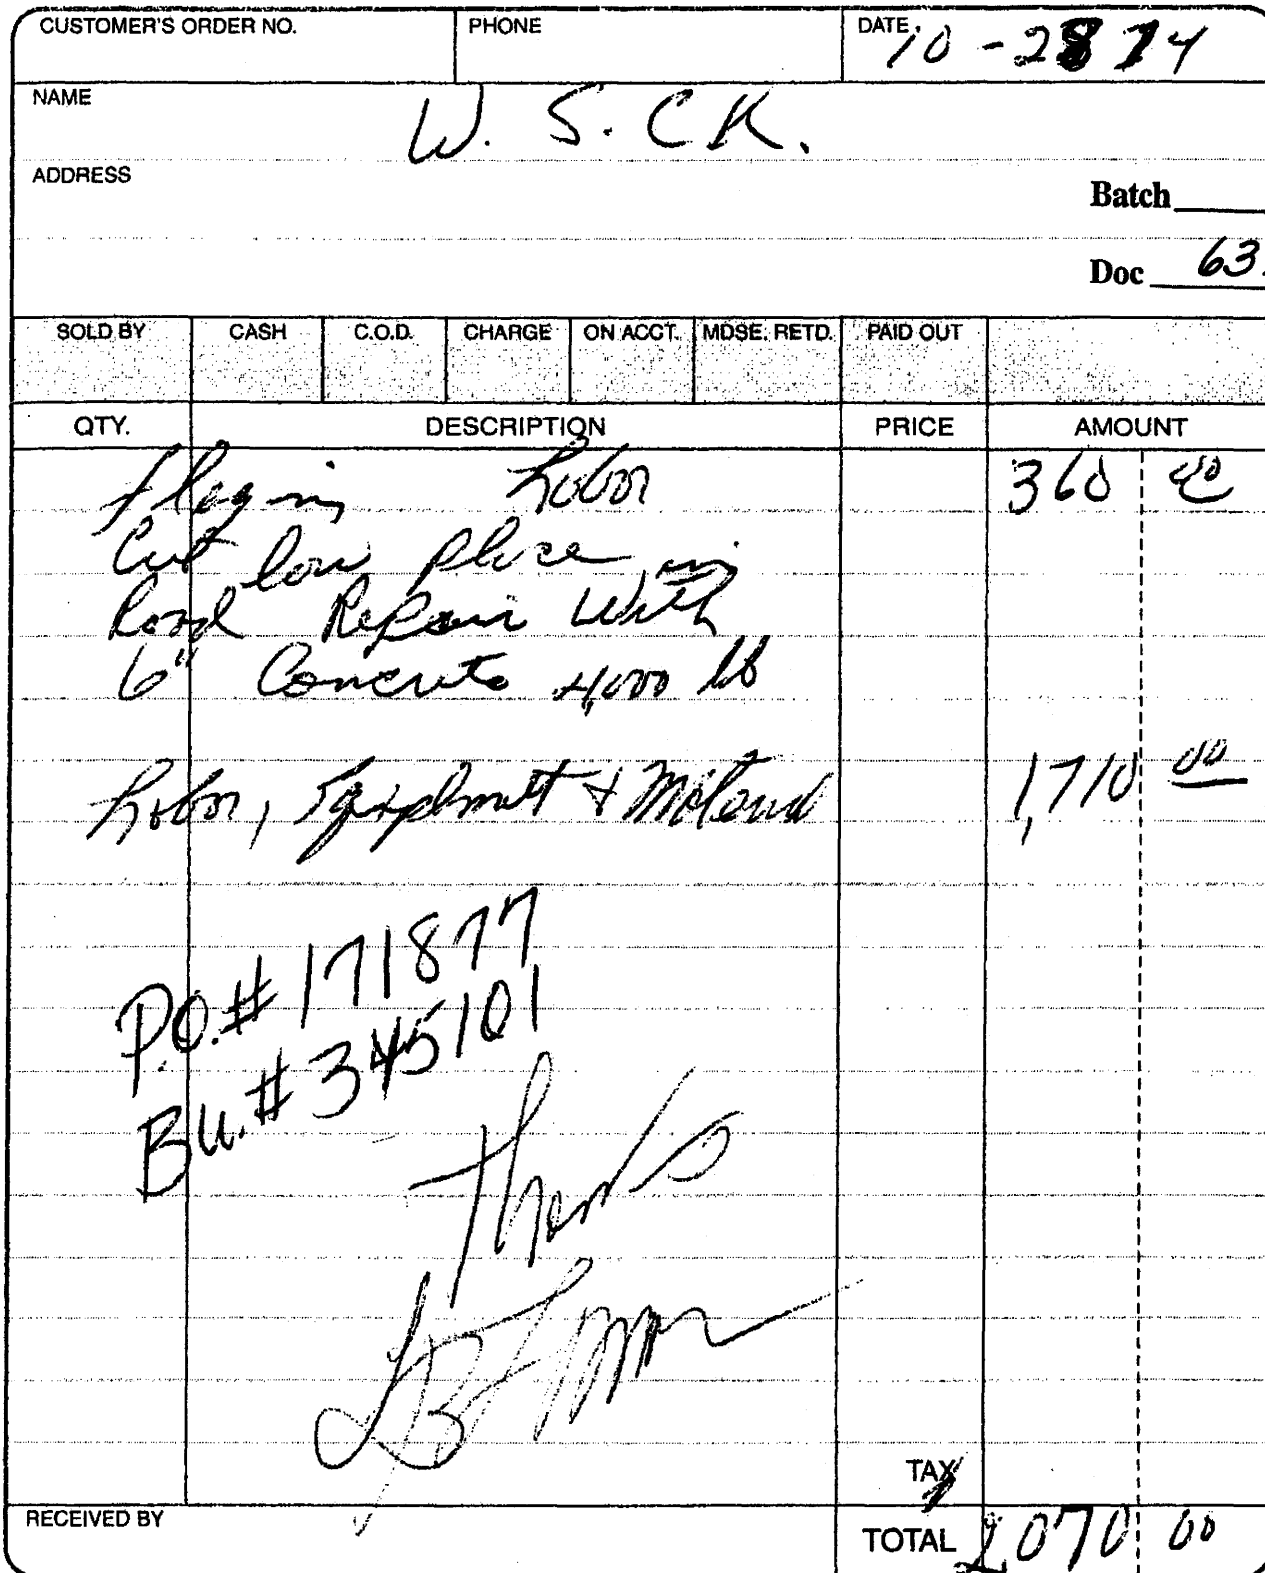 CUSTOMER'S ORDER NO. PHONE DATE 10-28 14
NAME W. S. C K.
ADDRESS
Batch
Doc 63
SOLD BY CASH C.O.D. CHARGE ON ACCT. MDSE. RETD. PAID OUT
QTY. DESCRIPTION PRICE AMOUNT
Flaging Labor 360 00
Cut low place in
Road Repair With
6" Concrete 4,000 lb
Labor, Equipment & Material 1,710 00
P.O.# 171877
Bu.# 345101
Thanks
TAX
RECEIVED BY TOTAL 2,070 00